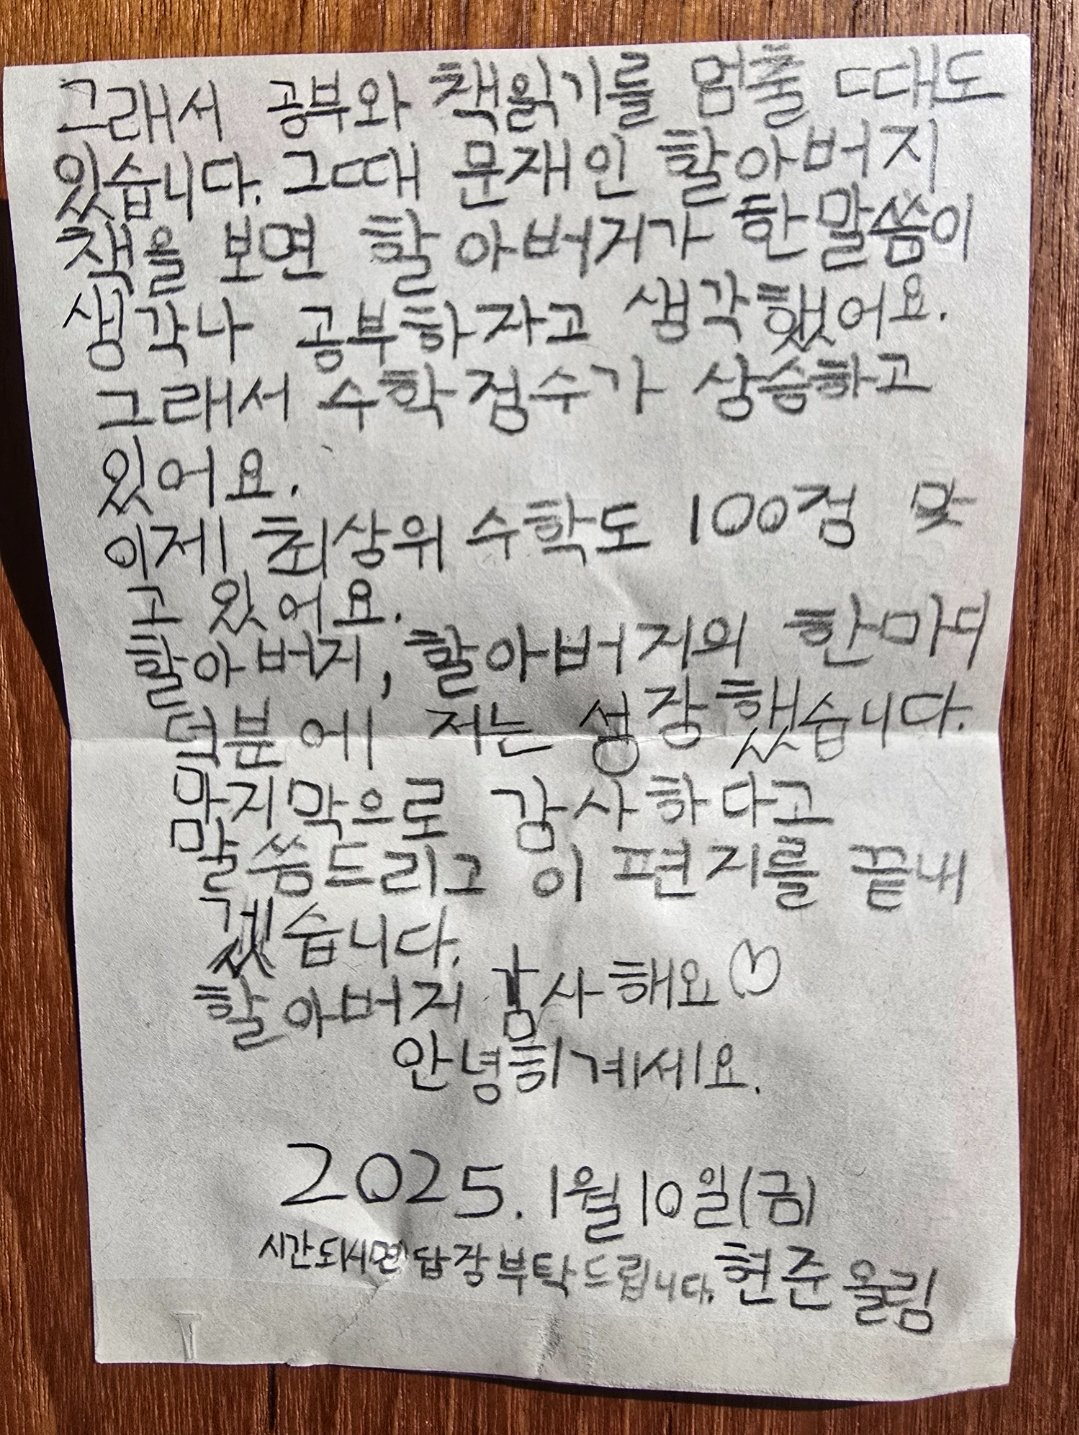 그래서 공부와 책읽기를 멈출 때도
있습니다. 그때 문재인 할아버지
책을 보면 할아버지가 한말씀이
생각나 공부하자고 생각했어요.
그래서 수학점수가 상승하고
있어요.
이제 최상위 수학도 100점 맞
고 있어요.
할아버지, 할아버지의 한마디
덕분에 저는 성장했습니다.
마지막으로 감사하다고
말씀드리고 이 편지를 끝내
겠습니다.
할아버지 감사해요♡
안녕히계세요.
2025. 1월 10일(금)
시간되시면 답장부탁드립니다. 현준올림